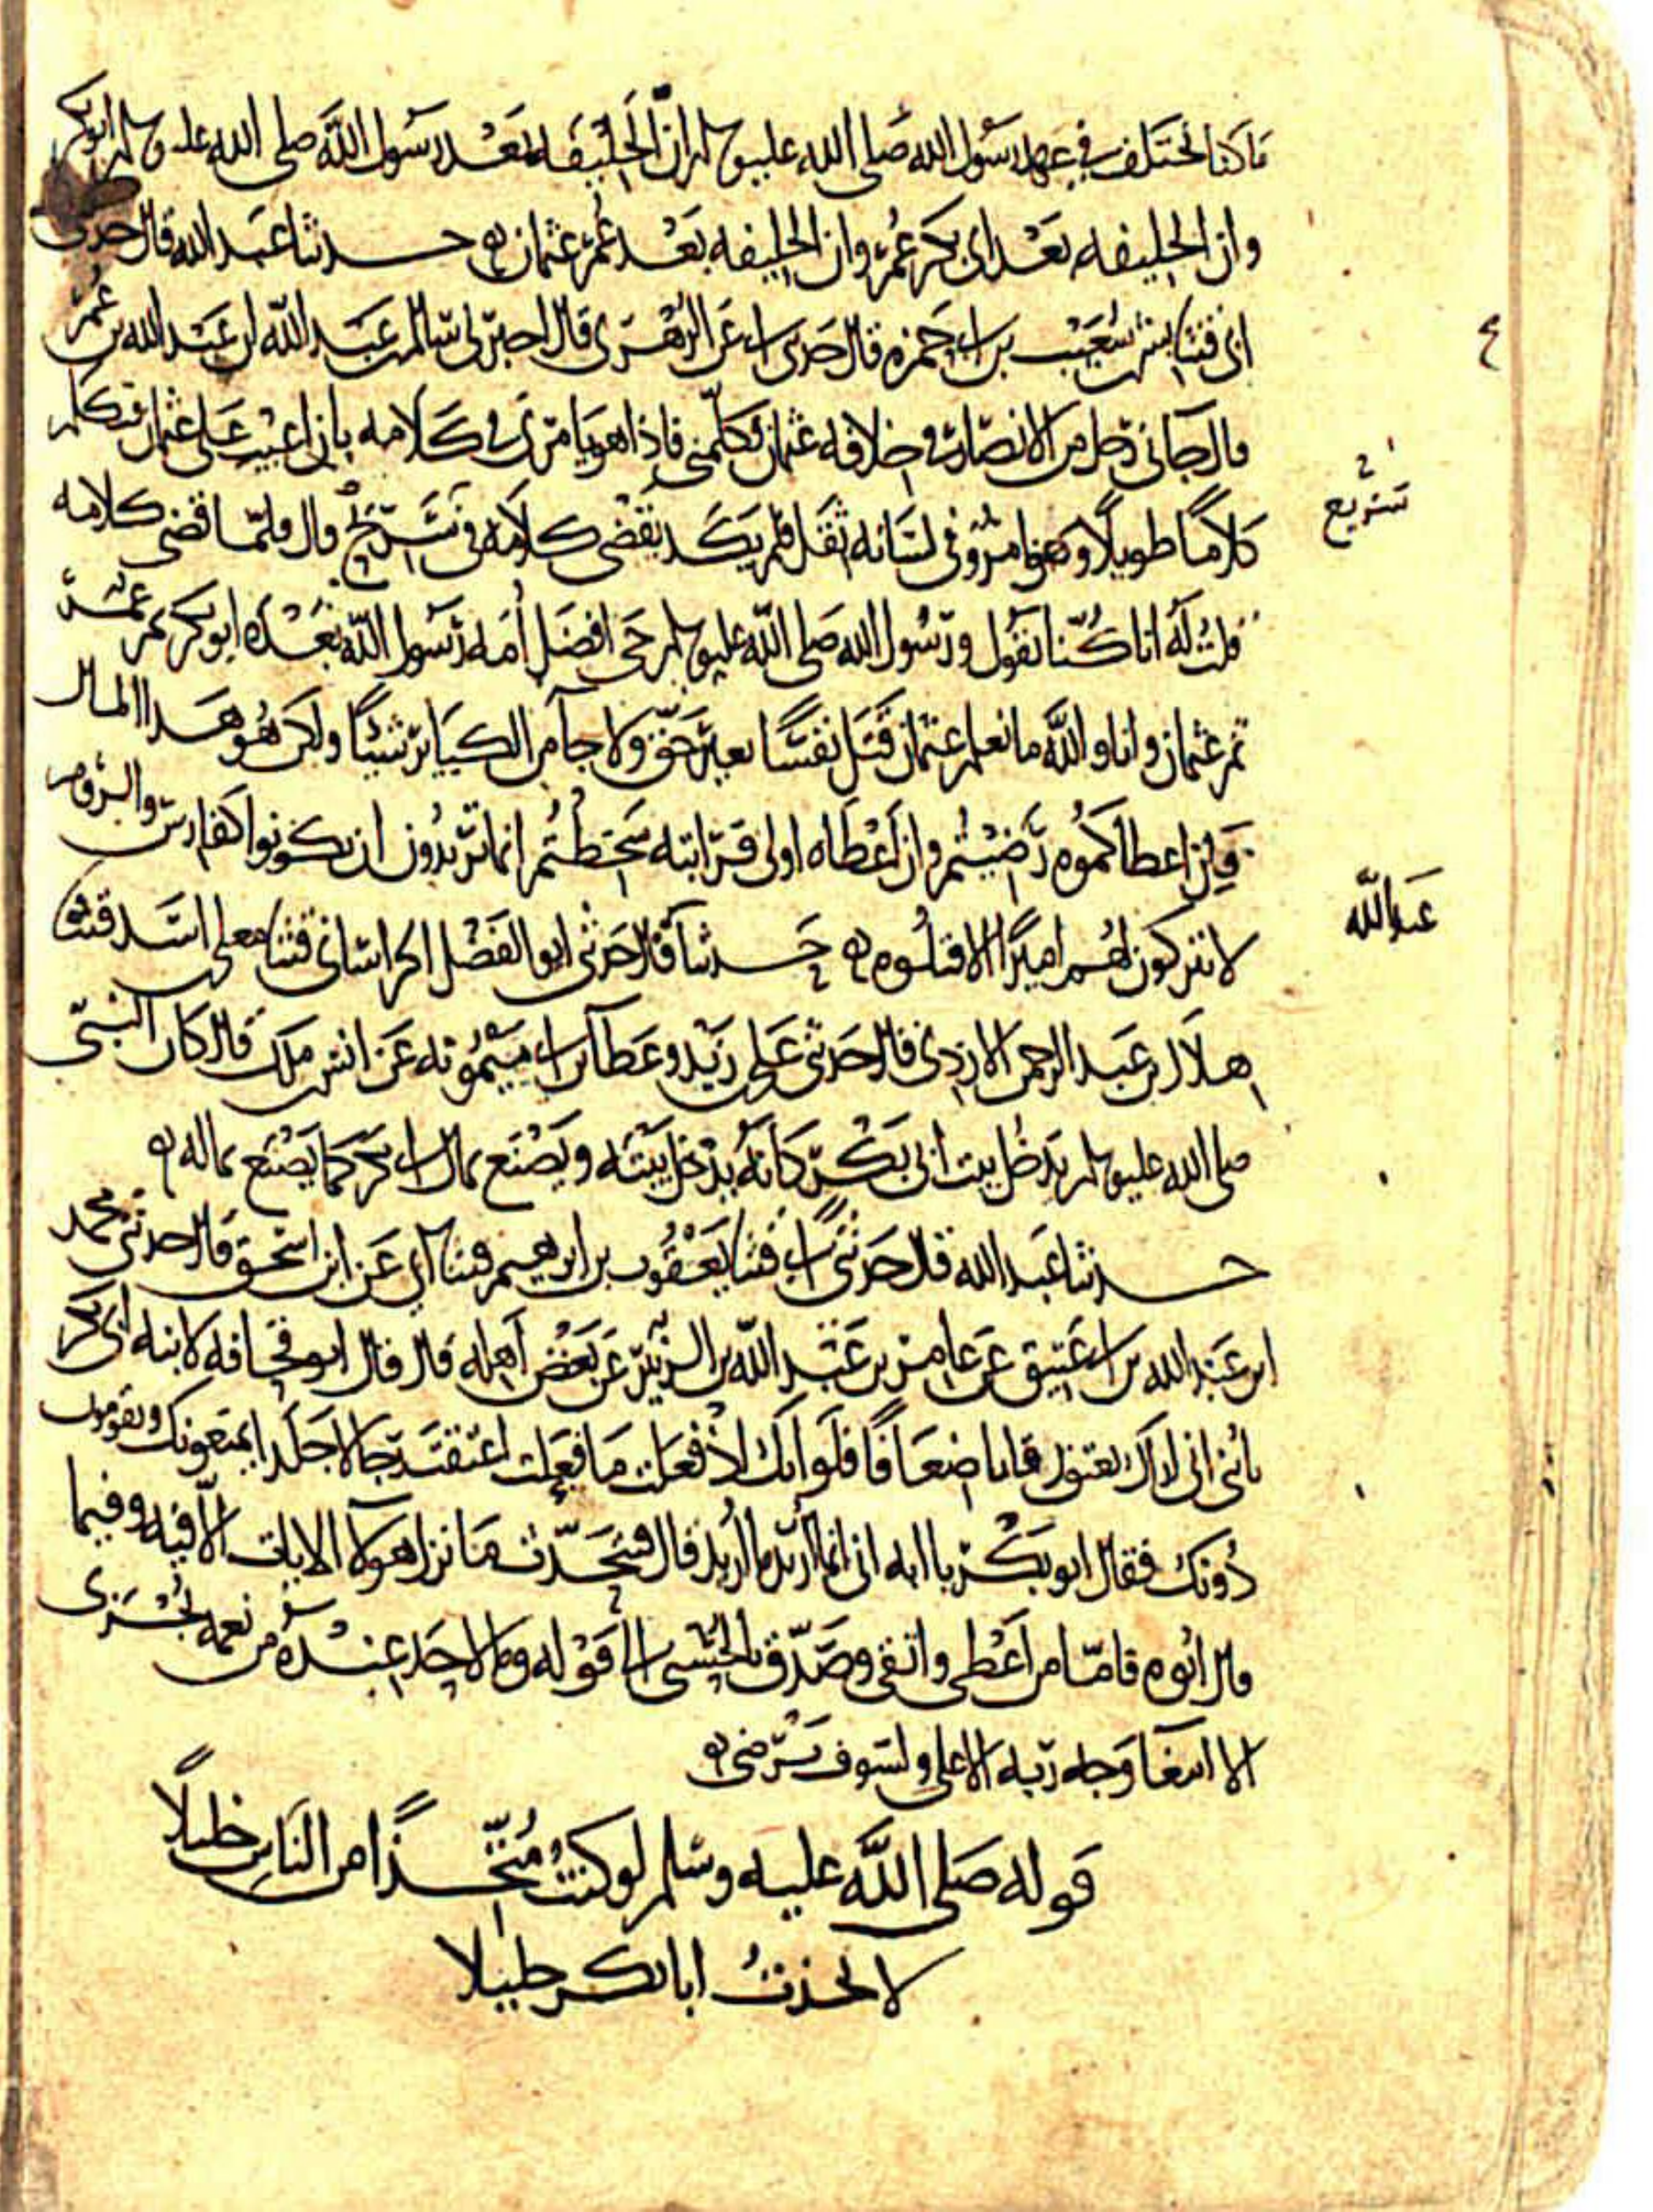 ما كنا نختلف في عهد رسول الله صلى الله عليه وسلم ان الخليفه بعد رسول الله صلى الله عليه وسلم ابو بكر
وان الخليفه بعد ابي بكر عمر وان الخليفه بعد عمر عثمان حدثنا عبد الله قال حدثني
ابي قثنا بشر بن شعيب بن ابي حمزه قال حدثني ابي عن الزهري قال اخبرني سالم بن عبد الله ان عبد الله بن عمر
قال جاني رجل من الانصار في خلافه عثمان فكلمني فاذا هو يامرني في كلامه بان اعيب على عثمان فتكلم
كلاما طويلا وهو امرؤ في لسانه ثقل فلم يكد يقضي كلامه في تسريح قال فلما قضى كلامه
قلت له انا كنا نقول ورسول الله صلى الله عليه وسلم حي افضل امه رسول الله بعده ابو بكر ثم عمر
ثم عثمان وانا والله ما نعلم عثمان قتل نفسا بغير حق ولا جا من الكبائر شيئا ولكن هو هذا المال
فان اعطاكموه رضيتم وان اعطاه اولى قرابته سخطتم انما تريدون ان تكونوا كفارس والروم
لا يتركون لهم اميرا الا قتلوه حدثنا قال حدثني ابو الفضل الخراساني قثنا معلى بن اسد قثنا
هلال بن عبد الرحمن الازدي قال حدثني علي بن زيد وعطا بن ابي ميمونه عن انس بن ملك قال كان النبي
صلى الله عليه وسلم يدخل بيت ابي بكر كانه يدخل بيته ويصنع بمال ابي بكر كما يصنع بماله
حدثنا عبد الله قال حدثني ابي قثنا يعقوب بن ابرهيم قثنا ابي عن ابن اسحق قال حدثني محمد
ابن عبد الله بن ابي عتيق عن عامر بن عبد الله بن الزبير عن بعض اهله قال قال ابو قحافه لابنه ابي بكر
يا بني اني اراك تعتق رقابا ضعافا فلو انك اذ فعلت ما فعلت اعتقت رجالا جلدا يمنعونك ويقومون
دونك فقال ابو بكر يا ابه اني انما اريد ما اريد قال فيتحدث ما نزل هولا الايات الا فيه وفيما
قال ابوه فاما من اعطى واتقى وصدق بالحسنى الى قوله وما لاحد عنده من نعمه تجزى
الا ابتغا وجه ربه الاعلى ولسوف يرضى
قوله صلى الله عليه وسلم لو كنت متخذا من الناس خليلا
لاتخذت ابا بكر خليلا
عبد الله